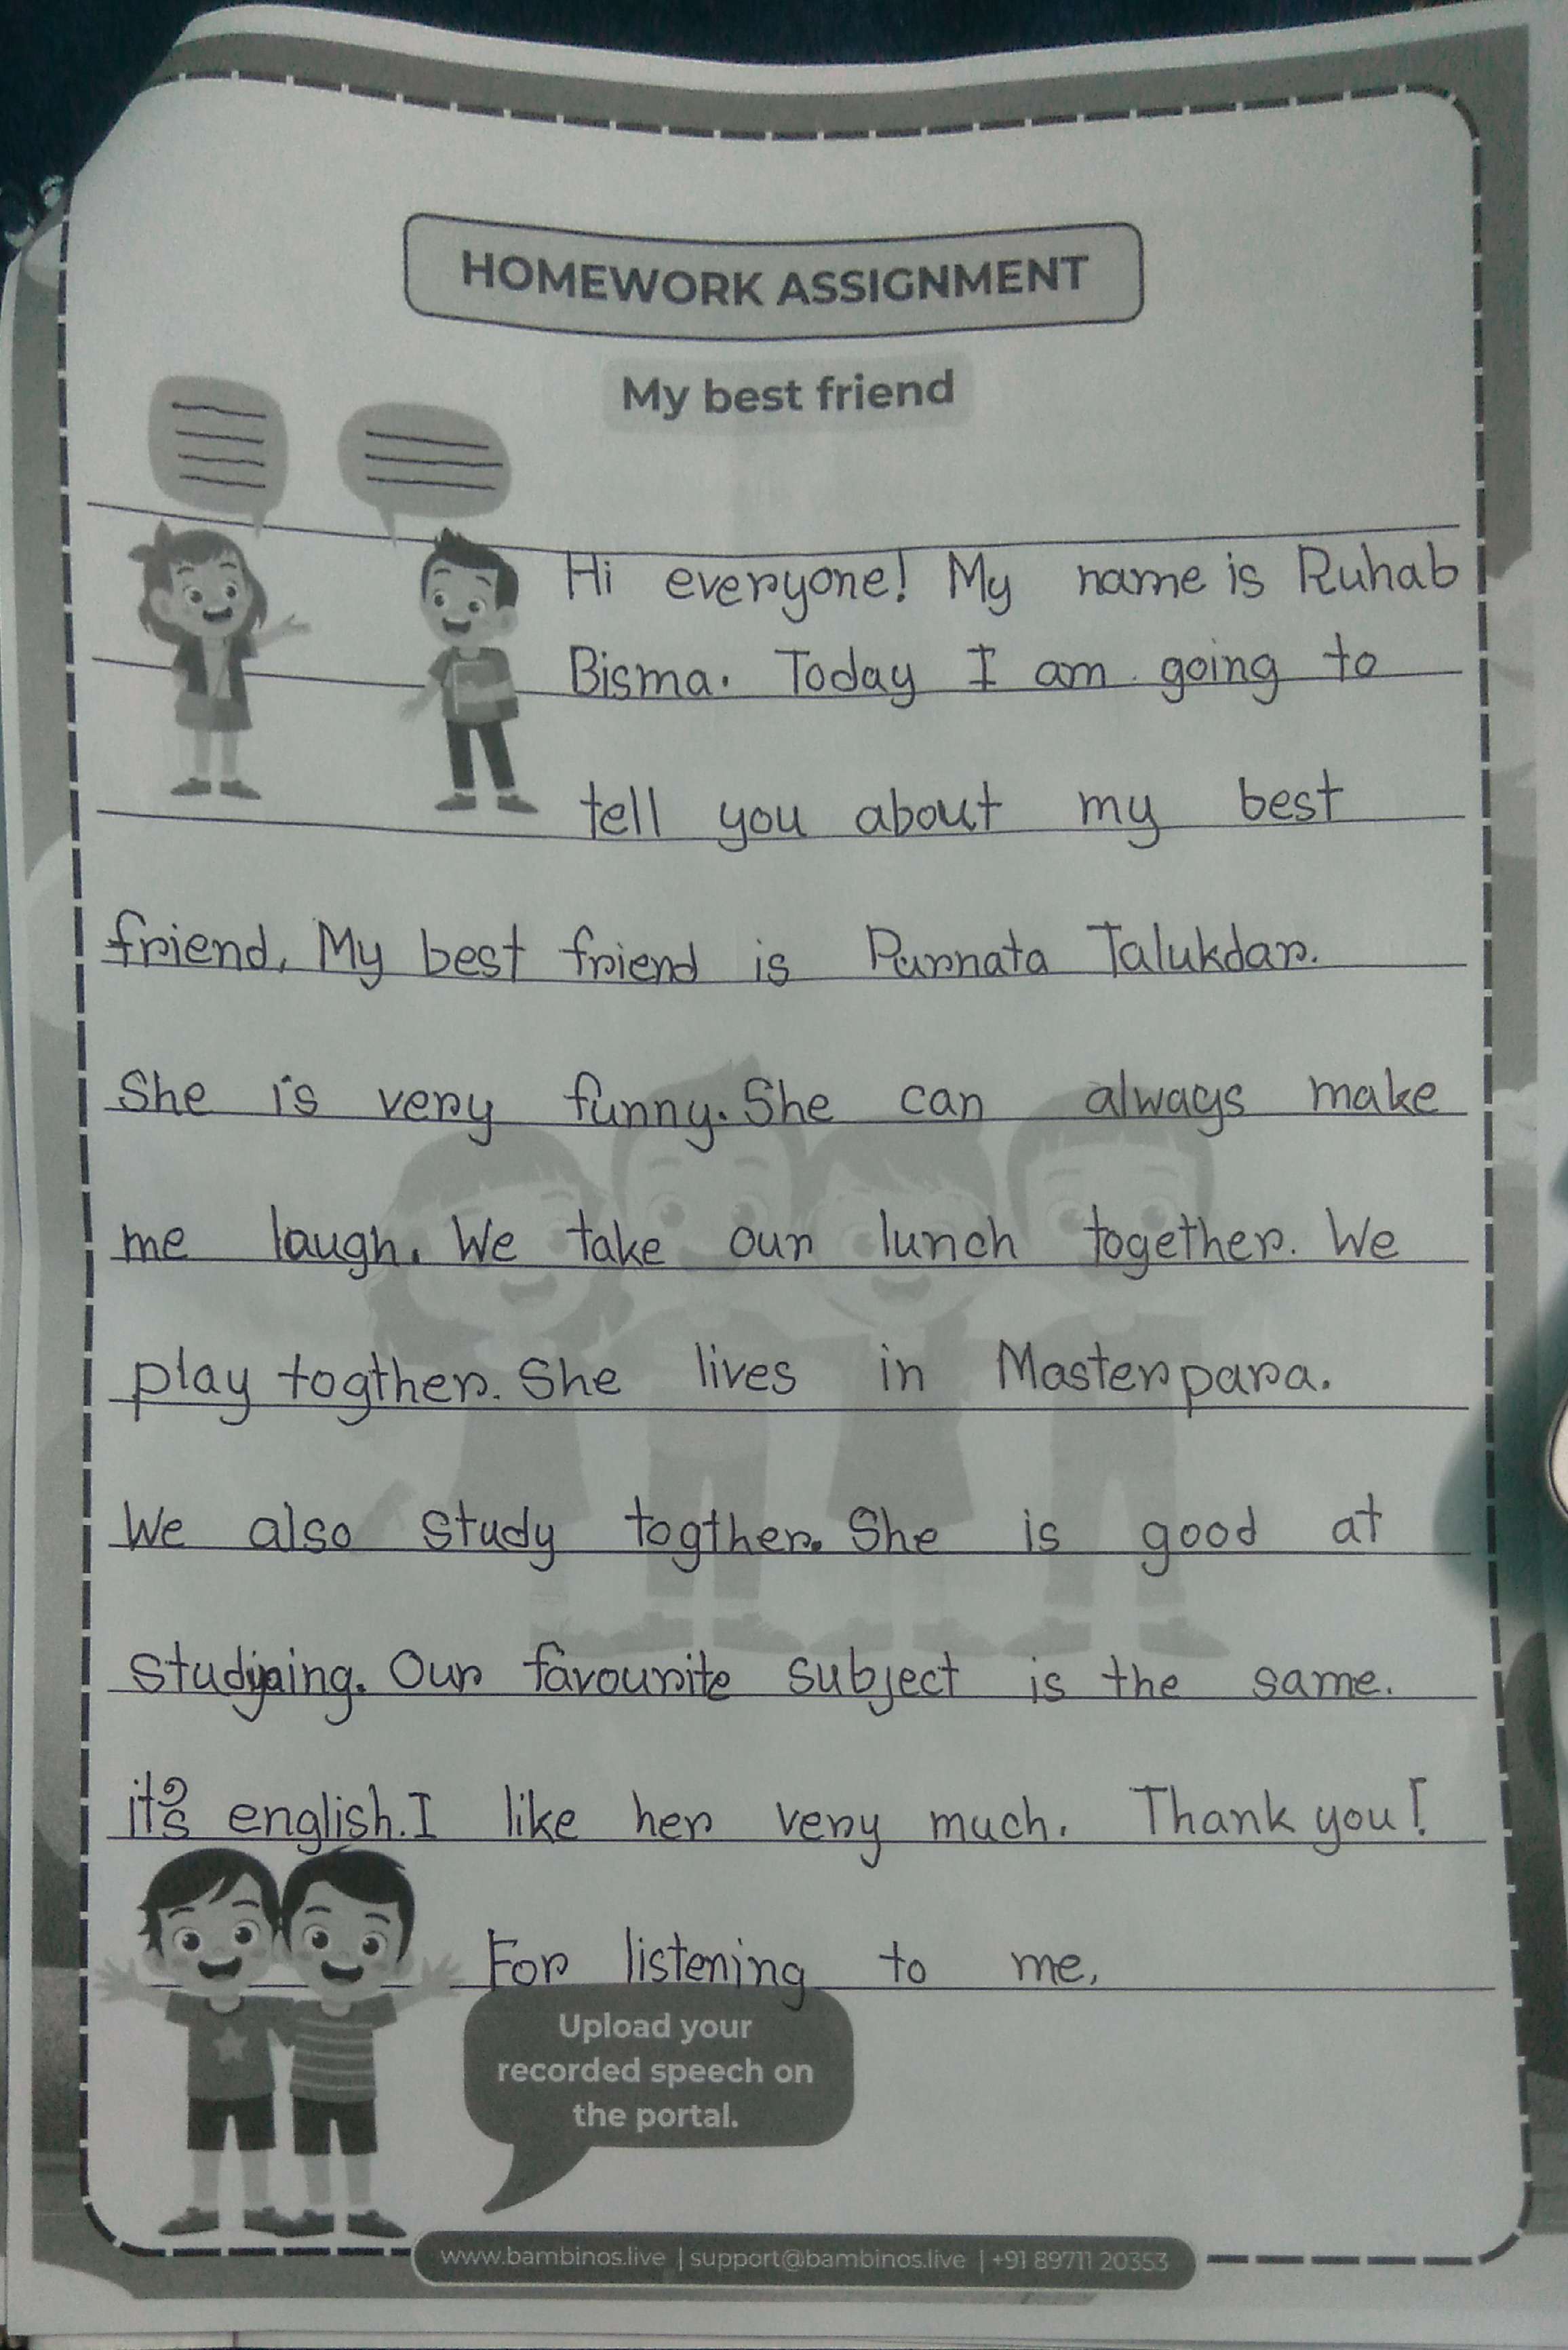 HOMEWORK ASSIGNMENT
My best friend
Hi everyone! My name is Ruhab
Bisma. Today I am going to
tell you about my best
friend. My best friend is Purnata Talukdar.
She is very funny. She can always make
me laugh. We take our lunch together. We
play togther. She lives in Masterpara.
We also study togther. She is good at
studying. Our favourite subject is the same.
it's english. I like her very much. Thank you!
For listening to me.
Upload your
recorded speech on
the portal.
www.bambinos.live | support@bambinos.live | +91 89711 20353